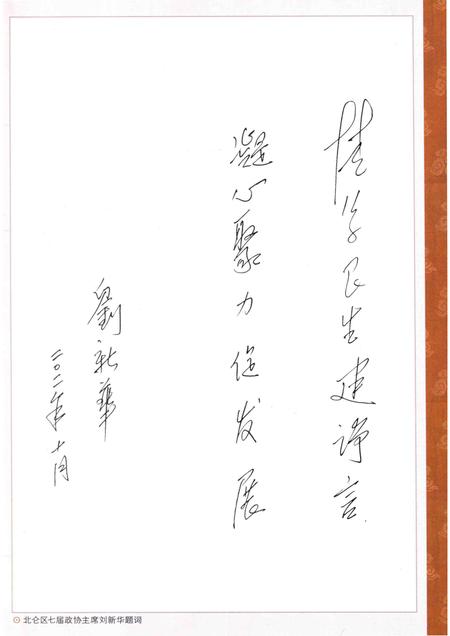 民生建诤言
凝心聚力促发展
劉新華
二〇一一年十月
北仑区七届政协主席刘新华题词